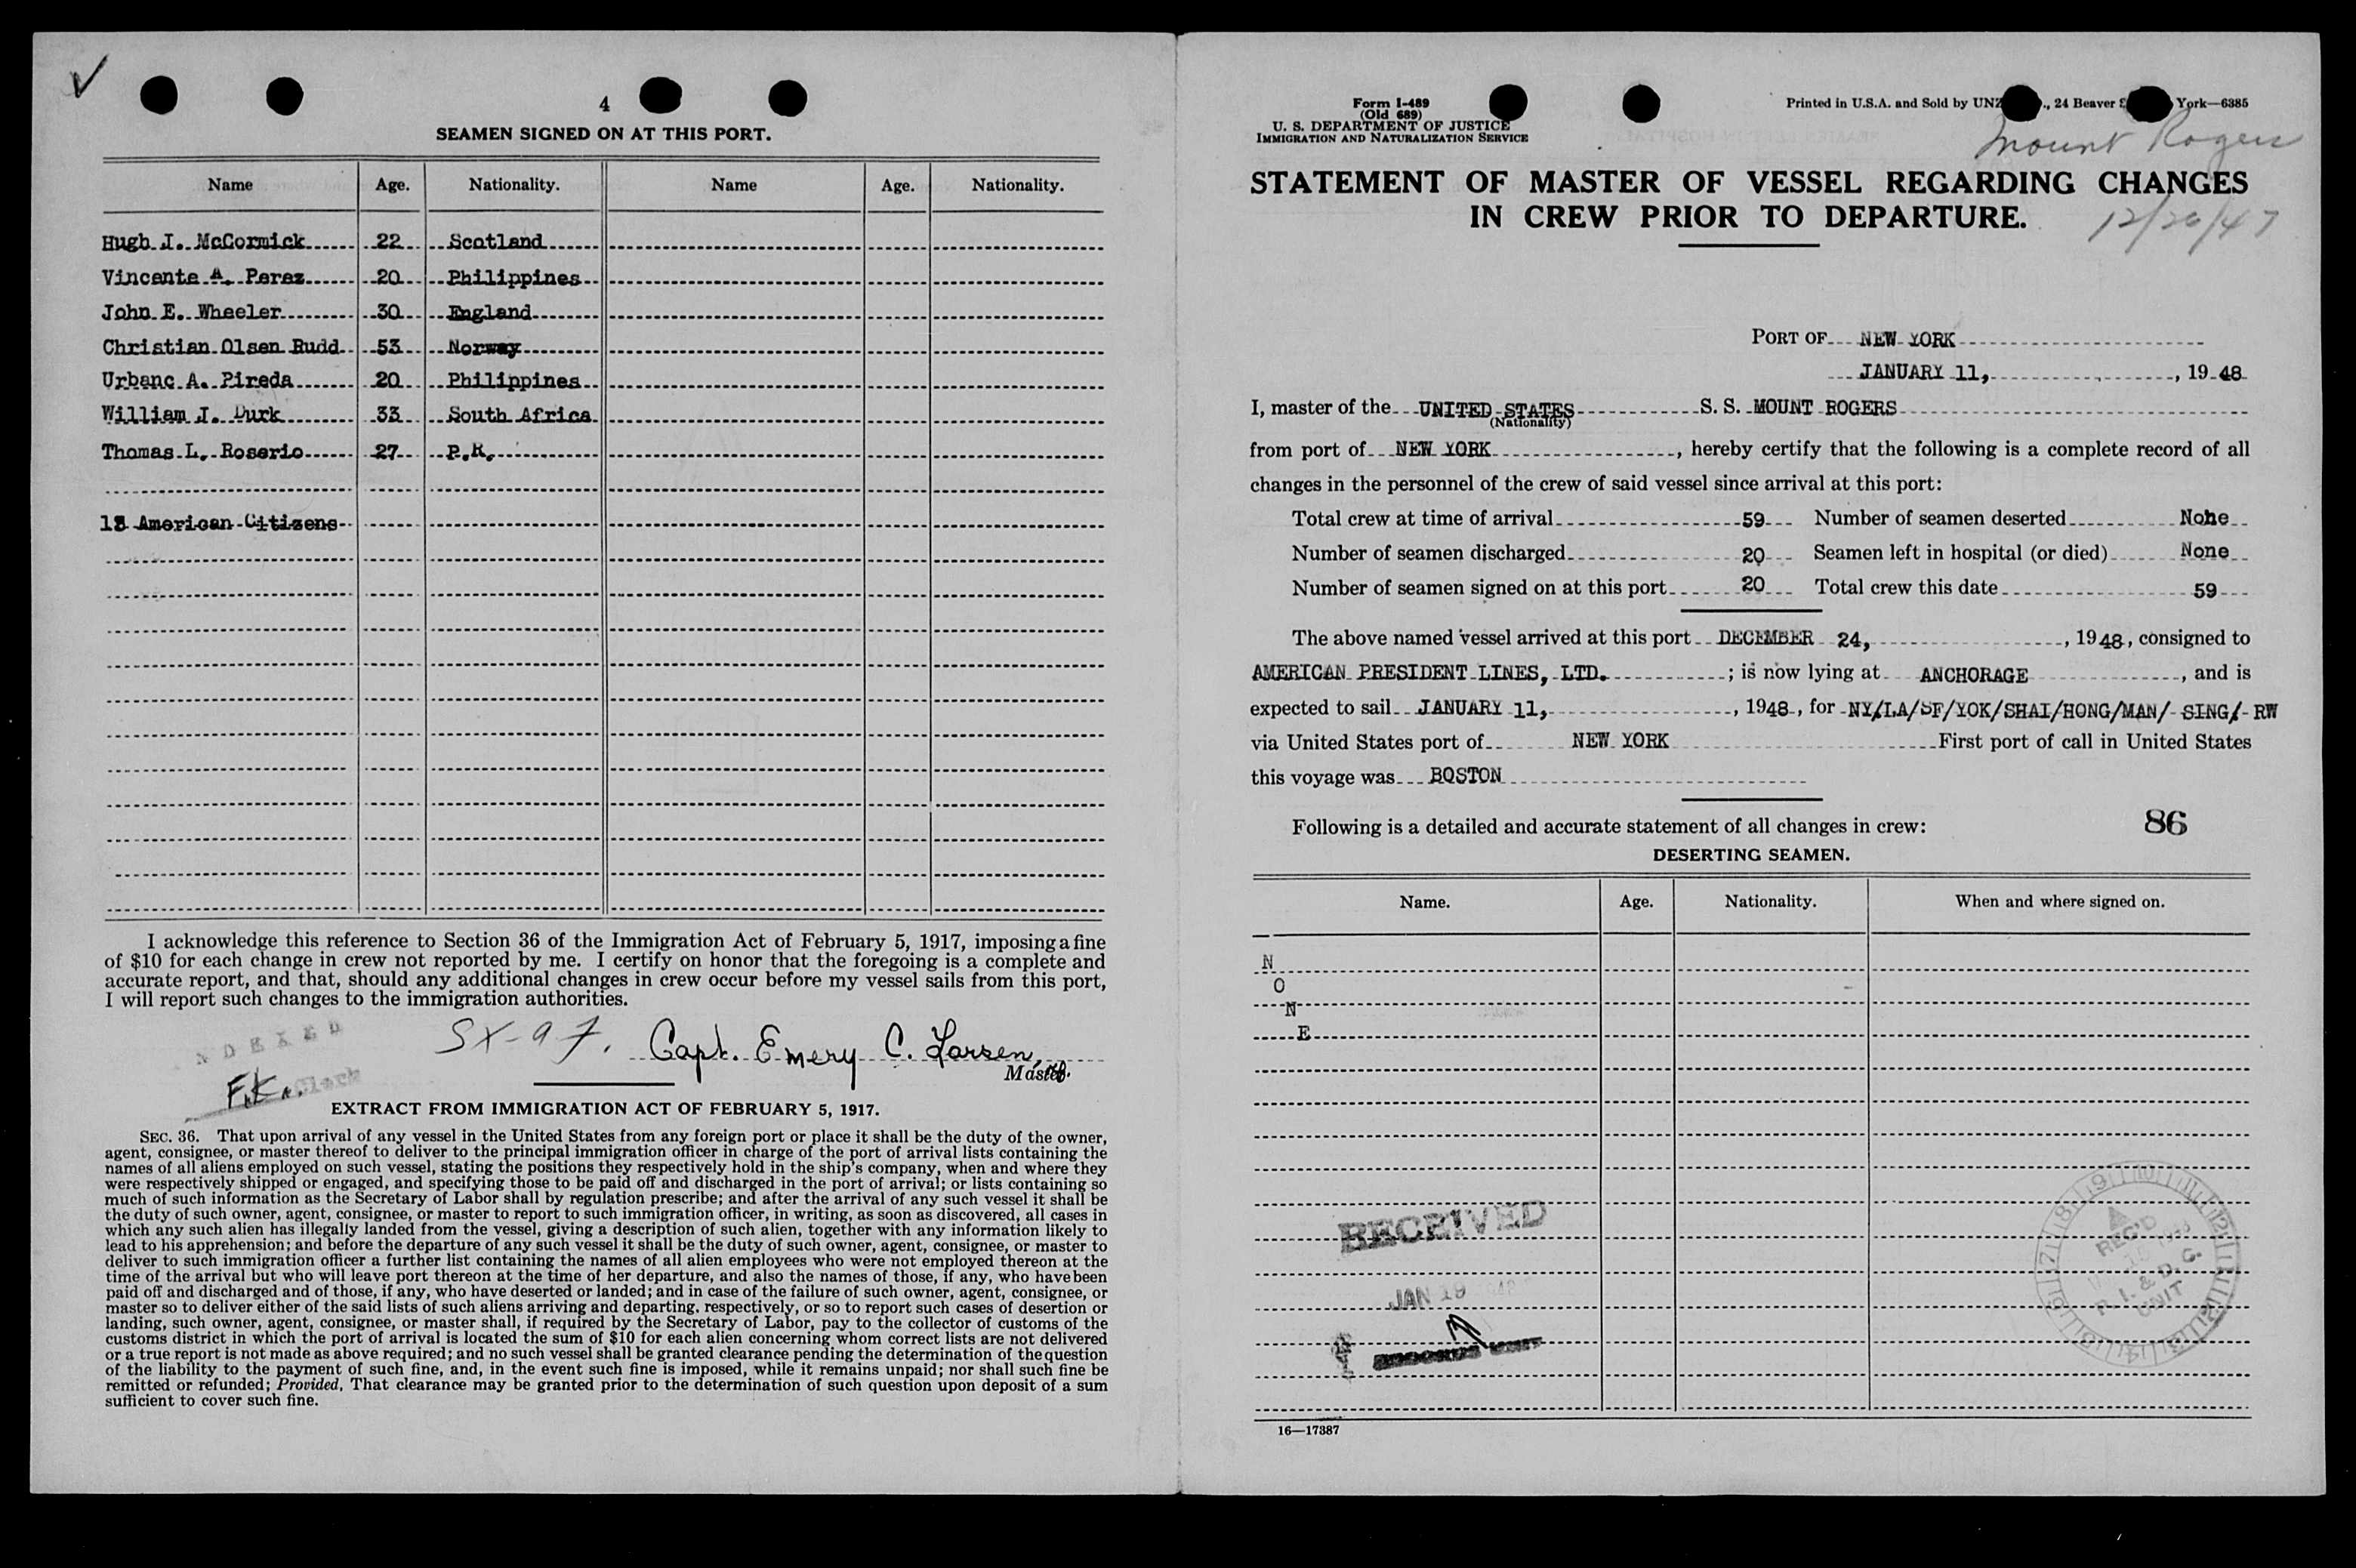 4
SEAMEN SIGNED ON AT THIS PORT.
Name Age. Nationality. Name Age. Nationality.
Hugh I. McCormick 22 Scotland
Vincente A. Perez 20 Philippines
John E. Wheeler 30 England
Christian Olsen Rudd 53 Norway
Urbano A. Pireda 20 Philippines
William J. Durk 33 South Africa
Thomas L. Rosario 27 P.R.
13 American Citizens
I acknowledge this reference to Section 36 of the Immigration Act of February 5, 1917, imposing a fine
of $10 for each change in crew not reported by me. I certify on honor that the foregoing is a complete and
accurate report, and that, should any additional changes in crew occur before my vessel sails from this port,
I will report such changes to the immigration authorities.
SX-97. Capt. Emery C. Larsen,
Master.
F.K. Clerk
EXTRACT FROM IMMIGRATION ACT OF FEBRUARY 5, 1917.
SEC. 36. That upon arrival of any vessel in the United States from any foreign port or place it shall be the duty of the owner,
agent, consignee, or master thereof to deliver to the principal immigration officer in charge of the port of arrival lists containing the
names of all aliens employed on such vessel, stating the positions they respectively hold in the ship's company, when and where they
were respectively shipped or engaged, and specifying those to be paid off and discharged in the port of arrival; or lists containing so
much of such information as the Secretary of Labor shall by regulation prescribe; and after the arrival of any such vessel it shall be
the duty of such owner, agent, consignee, or master to report to such immigration officer, in writing, as soon as discovered, all cases in
which any such alien has illegally landed from the vessel, giving a description of such alien, together with any information likely to
lead to his apprehension; and before the departure of any such vessel it shall be the duty of such owner, agent, consignee, or master to
deliver to such immigration officer a further list containing the names of all alien employees who were not employed thereon at the
time of the arrival but who will leave port thereon at the time of her departure, and also the names of those, if any, who have been
paid off and discharged and of those, if any, who have deserted or landed; and in case of the failure of such owner, agent, consignee, or
master so to deliver either of the said lists of such aliens arriving and departing, respectively, or so to report such cases of desertion or
landing, such owner, agent, consignee, or master shall, if required by the Secretary of Labor, pay to the collector of customs of the
customs district in which the port of arrival is located the sum of $10 for each alien concerning whom correct lists are not delivered
or a true report is not made as above required; and no such vessel shall be granted clearance pending the determination of the question
of the liability to the payment of such fine, and, in the event such fine is imposed, while it remains unpaid; nor shall such fine be
remitted or refunded; Provided, That clearance may be granted prior to the determination of such question upon deposit of a sum
sufficient to cover such fine.
Form I-489
(Old 689)
U. S. DEPARTMENT OF JUSTICE
IMMIGRATION AND NATURALIZATION SERVICE
Printed in U.S.A. and Sold by UNZ ., 24 Beaver York—6385
Mount Rogers
STATEMENT OF MASTER OF VESSEL REGARDING CHANGES
IN CREW PRIOR TO DEPARTURE.
12/26/47
PORT OF NEW YORK
JANUARY 11, , 19 48
I, master of the UNITED STATES S. S. MOUNT ROGERS
(Nationality)
from port of NEW YORK , hereby certify that the following is a complete record of all
changes in the personnel of the crew of said vessel since arrival at this port:
Total crew at time of arrival 59 Number of seamen deserted None
Number of seamen discharged 20 Seamen left in hospital (or died) None
Number of seamen signed on at this port 20 Total crew this date 59
The above named vessel arrived at this port DECEMBER 24, , 1948, consigned to
AMERICAN PRESIDENT LINES, LTD. ; is now lying at ANCHORAGE , and is
expected to sail JANUARY 11, , 1948, for NY/LA/SF/YOK/SHAI/HONG/MAN/ SING/ RW
via United States port of NEW YORK First port of call in United States
this voyage was BOSTON
Following is a detailed and accurate statement of all changes in crew:
86
DESERTING SEAMEN.
Name. Age. Nationality. When and where signed on.
N
O
N
E
RECEIVED
JAN 19
REC'D
P. I. & D. C.
UNIT
16—17387